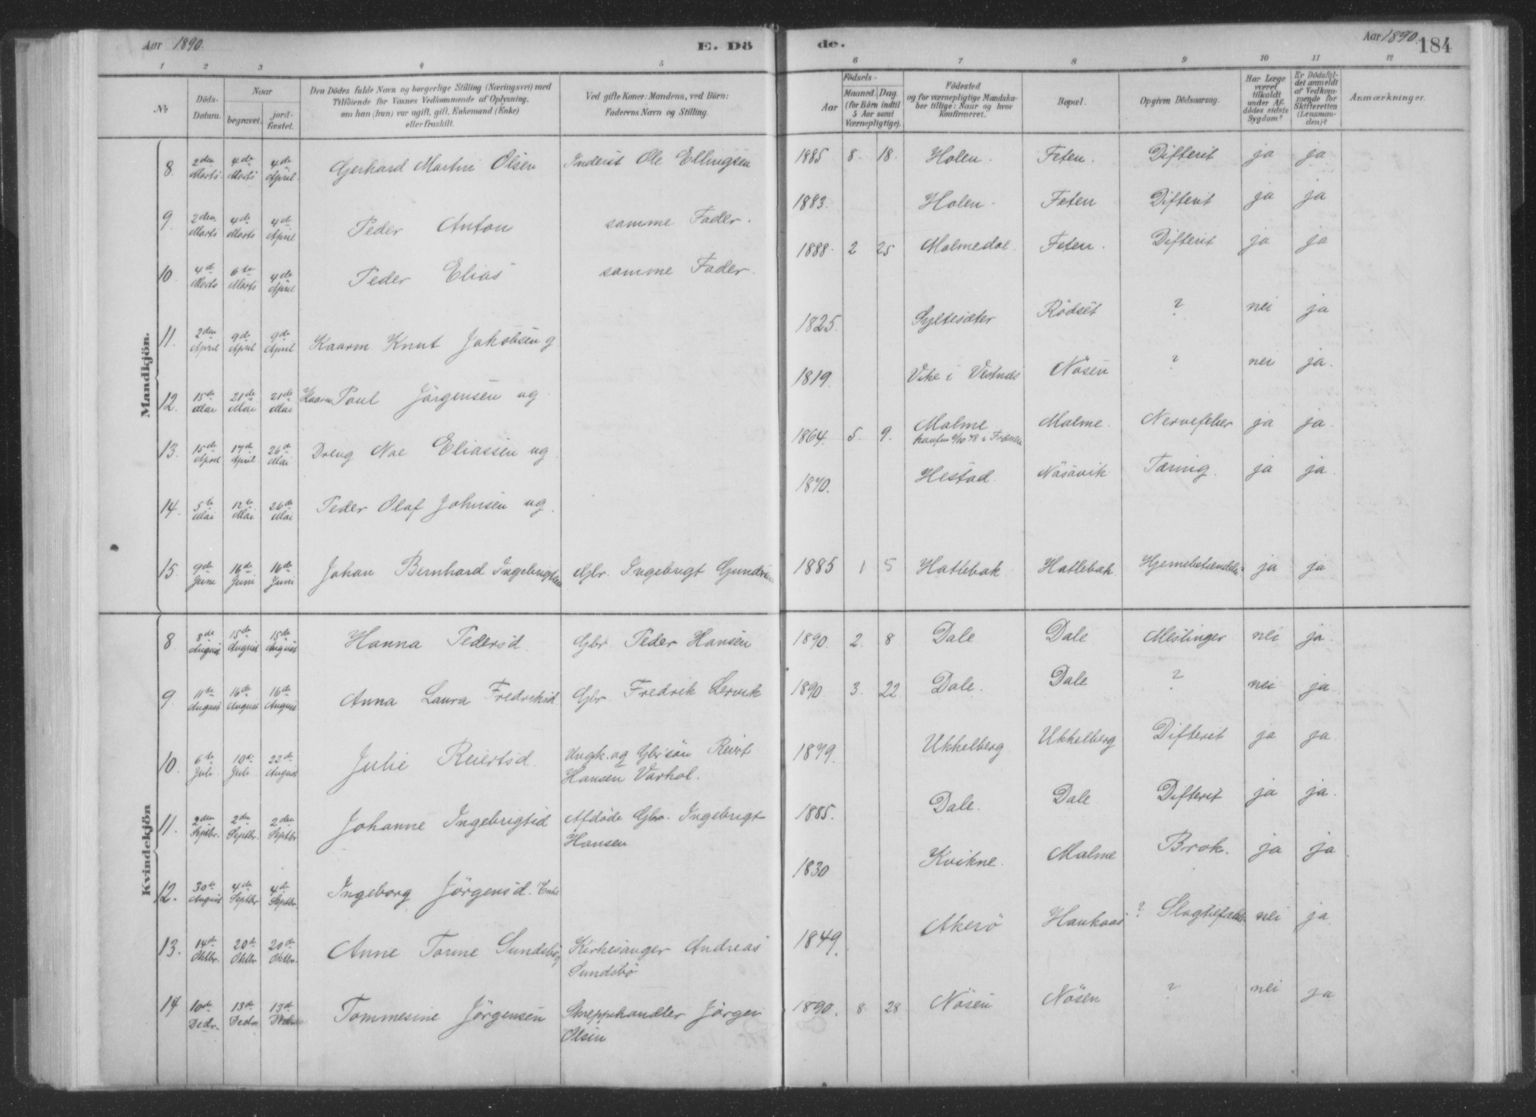 Aar 1890.
E. Dö
de.
Aar 1890.
184
1 2 3 4 5 6 7 8 9 10 11 12
No.
Döds-Datum.
Naar
begravet.
jord-fæstet.
Den Dödes fulde Navn og borgerlige Stilling (Næringsvei) med
Tilföiende for Voxnes Vedkommende af Oplysning,
om han (hun) var ugift, gift, Enkemand (Enke)
eller fraskilt.
Ved gifte Koner: Mandens, ved Börn:
Faderens Navn og Stilling.
Födsels-
Aar
Maaned. Dag
(for Börn indtil
5 Aar samt
Værnepligtige).
Födested
og for værnepligtige Mandska-
ber tillige: Naar og hvor
konfirmeret.
Bopæl.
Opgiven Dödsaarsag.
Har Læge
været
tilkaldt
under Af-
dödes sidste
Sygdom?
Er Dödsfal-
det anmeldt
af Vedkom-
mende for
Skifteretten
(Lensman-
den)?
Anmærkninger.
Mandkjön.
8 2den Marts 4de Marts 4de April Gerhard Martin Olsen Inderst Ole Ellingsen 1885 8. 18. Holen. Feten. Difterit ja ja
9. 2den Marts 4de Marts 4de April Peder Anton samme Fader. 1883. Holen. Feten Difterit ja ja
10. 4de Marts 6te Marts 4de April Peder Elias samme Fader. 1888. 2 25 Malmedal. Feten. Difterit ja ja
11. 2den April 9de April 9de April Kaarm. Knut Jakobsen g 1825. Syltesæter Rödset ? nei ja
12. 15de Mai 21de Mai 21de Mai Kaarm Poul Jörgensen ug. 1819. Vike i Vestnes Nösen ? nei ja.
13. 15de April 17de April 26de Mai Dreng Nae Eliassen ug. 1864. 5. 9. Malme Malme. Nervefeber ja ja.
14. 5te Mai 12te Mai 26de Mai Peder Olaf Johnsen ug. 1870. Hestad. Nösavik Tæring. ja ja.
15. 9de Juni 16de Juni 16de Juni Johan Bernhard Ingebrigtsen Gbr. Ingebrigt 1885 1 5 Hatlebak Hatlebak Hjernebetændelse ja ja
Kvindekjön
8 8de August 15de August 15de August Hanna Pedersd. Gbr. Peder Hansen 1890. 2. 8 Dale Dale Meslinger nei ja.
9 11te August 16de August 16de August Anna Laura Fredriksd. Gbr Fredrik Lervik 1890 3. 22 Dale. Dale ? nei ja
10. 6te Juli 10de Juli 22de August Julie Reiersd. Ungk. og Gbrsön Reiert
Hansen Varhol. 1879. Ukkelberg. Ukkelberg Difterit ja ja.
11. 2den Septbr. 2den Septbr. 2den Septbr. Johanne Ingebrigtsd Afdöde Gbr. Ingebrigt
Hansen 1885. Dale. Dale Difterit ja ja.
12. 30te August 4de Septbr 4de Septbr. Ingeborg Jörgensd. Enke 1830 Kvikne. Malme Brok. ja ja
13. 14de Oktbr. 20de Oktbr 20de Oktbr. Anne Tomine Sundsbö Kirkesanger Andreas
Sundsbö 1849. Akerö Haukaas ? nei ja
14 10de Decbr. 13de Decbr 13de Tommesine Jörgensen Jörgen
Olsen 1890. 8 28 Nösen Nösen ? nei ja